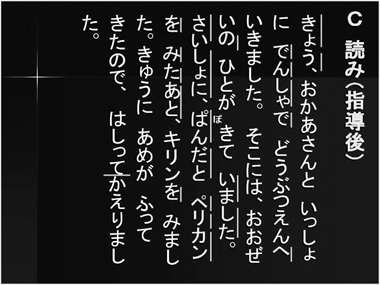 C 読み(指導後)
きょう、おかあさんと いっしょ
に でんしゃで どうぶつえんへ
いきました。 そこには、おおぜ
いの ひとが きて いました。
さいしょに、ぱんだと ペリカン
を みたあと、キリンを みまし
た。きゅうに あめが ふって
きたので、 はしってかえりまし
た。
ぽ